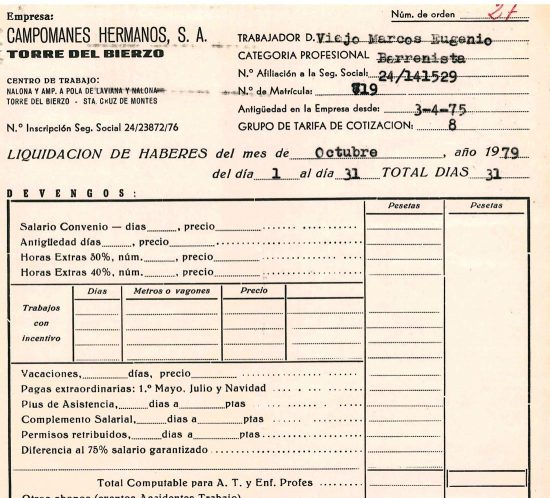 Empresa:
CAMPOMANES HERMANOS, S. A.
TORRE DEL BIERZO
CENTRO DE TRABAJO:
NALONA Y AMP. A POLA DE LAVIANA Y NALONA
TORRE DEL BIERZO - STA. CRUZ DE MONTES
N.º Inscripción Seg. Social 24/23872/76
Núm. de orden 27
TRABAJADOR D. Viejo Marcos Eugenio
CATEGORIA PROFESIONAL Barrenista
N.º Afiliación a la Seg. Social: 24/141529
N.º de Matrícula: 819
Antigüedad en la Empresa desde: 3-4-75
GRUPO DE TARIFA DE COTIZACION: 8
LIQUIDACION DE HABERES del mes de Octubre, año 1979
del día 1 al día 31 TOTAL DIAS 31
DEVENGOS:
Pesetas Pesetas
Salario Convenio — días______, precio
Antigüedad días______, precio
Horas Extras 50%, núm.______, precio
Horas Extras 40%, núm.______, precio
Trabajos con incentivo
Días Metros o vagones Precio
Vacaciones,______ días, precio
Pagas extraordinarias: 1.º Mayo, Julio y Navidad
Plus de Asistencia,______días a______ptas
Complemento Salarial,______días a______ptas
Permisos retribuidos,______días a______ptas.
Diferencia al 75% salario garantizado
Total Computable para A. T. y Enf. Profes
Otros abonos (exentos Accidentes Trabajo)